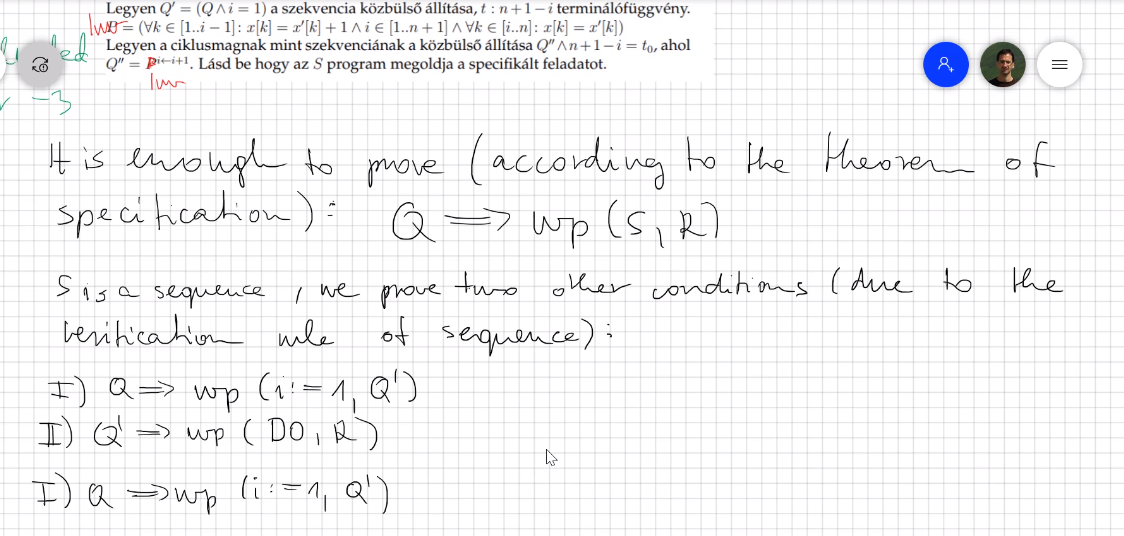 Legyen Q′ = (Q ∧ i = 1) a szekvencia közbülső állítása, t : n + 1 − i terminálófüggvény.
Inv = (∀k ∈ [1..i − 1]: x[k] = x′[k] + 1 ∧ i ∈ [1..n + 1] ∧ ∀k ∈ [i..n]: x[k] = x′[k])
Legyen a ciklusmagnak mint szekvenciának a közbülső állítása Q″ ∧ n + 1 − i = t₀, ahol
Q″ = P^{i←i+1}. Lásd be hogy az S program megoldja a specifikált feladatot.
Inv
-3
It is enough to prove (according to the theorem of
specification): Q ⟹ wp (S, R)
S is a sequence, we prove two other conditions (due to the
verification rule of sequence):
I) Q ⟹ wp (i:=1, Q')
II) Q' ⟹ wp (DO, R)
I) Q ⟹ wp (i:=1, Q')